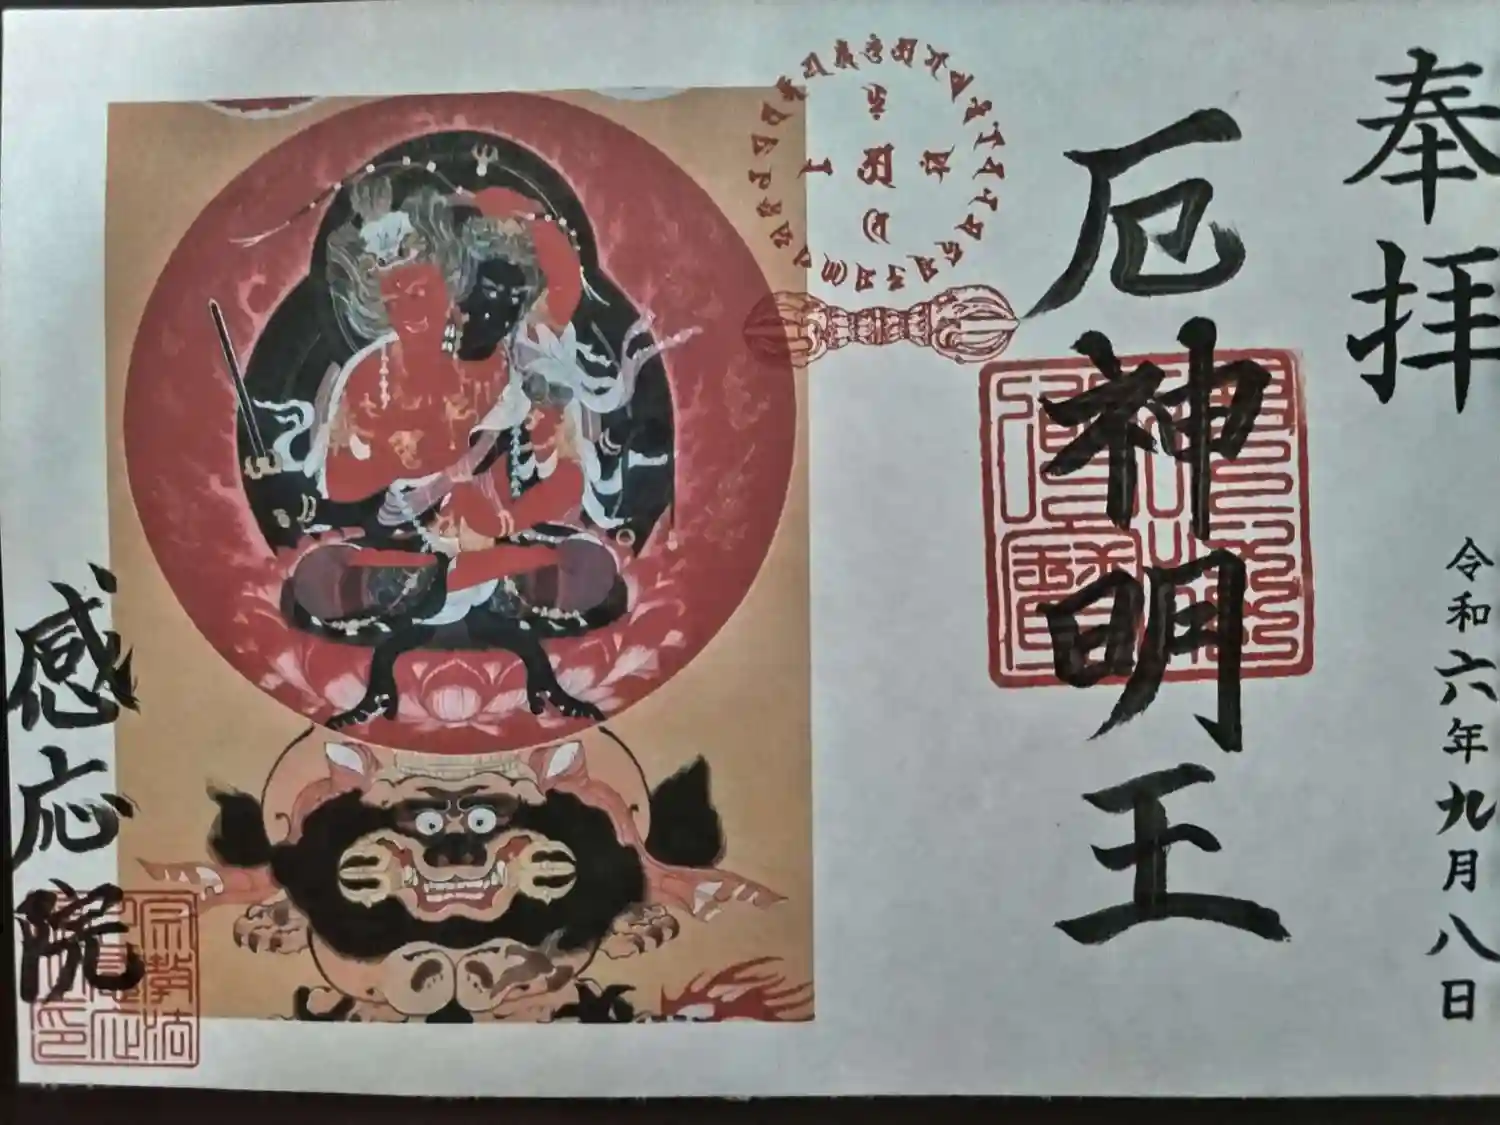 奉拝
令和六年九月八日
厄神明王
感応院